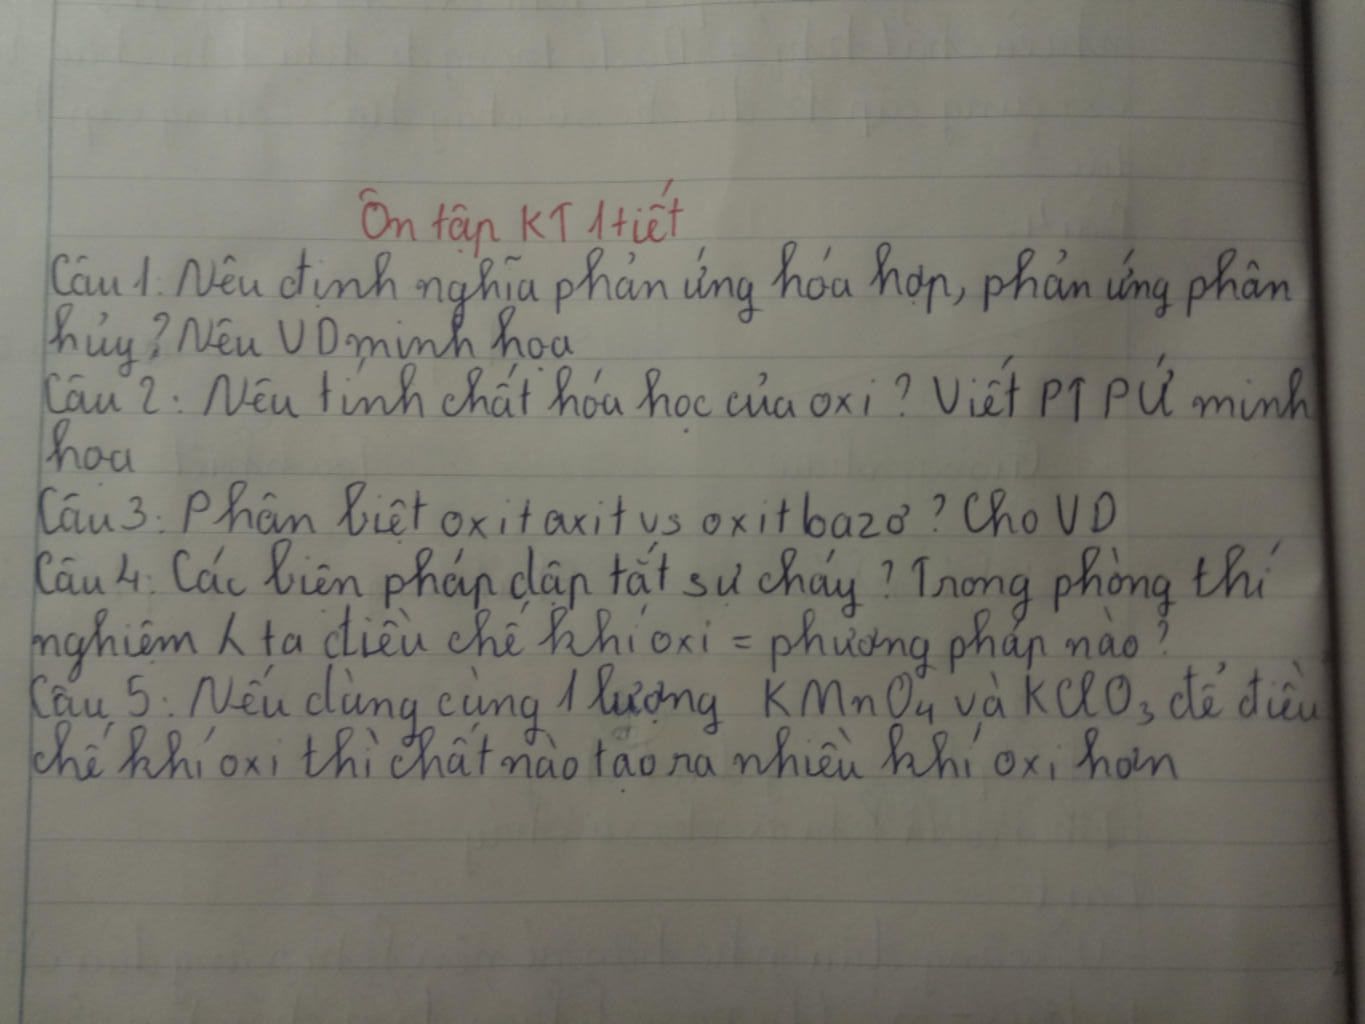 Ôn tập KT 1 tiết
Câu 1: Nêu định nghĩa phản ứng hóa hợp, phản ứng phân
hủy? Nêu VD minh họa
Câu 2: Nêu tính chất hóa học của oxi? Viết PT PỨ minh
họa
Câu 3: Phân biệt oxit axit vs oxit bazơ? Cho VD
Câu 4: Các biện pháp dập tắt sự cháy? Trong phòng thí
nghiệm ta điều chế khí oxi = phương pháp nào?
Câu 5: Nếu dùng cùng 1 lượng KMnO₄ và KClO₃ để điều
chế khí oxi thì chất nào tạo ra nhiều khí oxi hơn